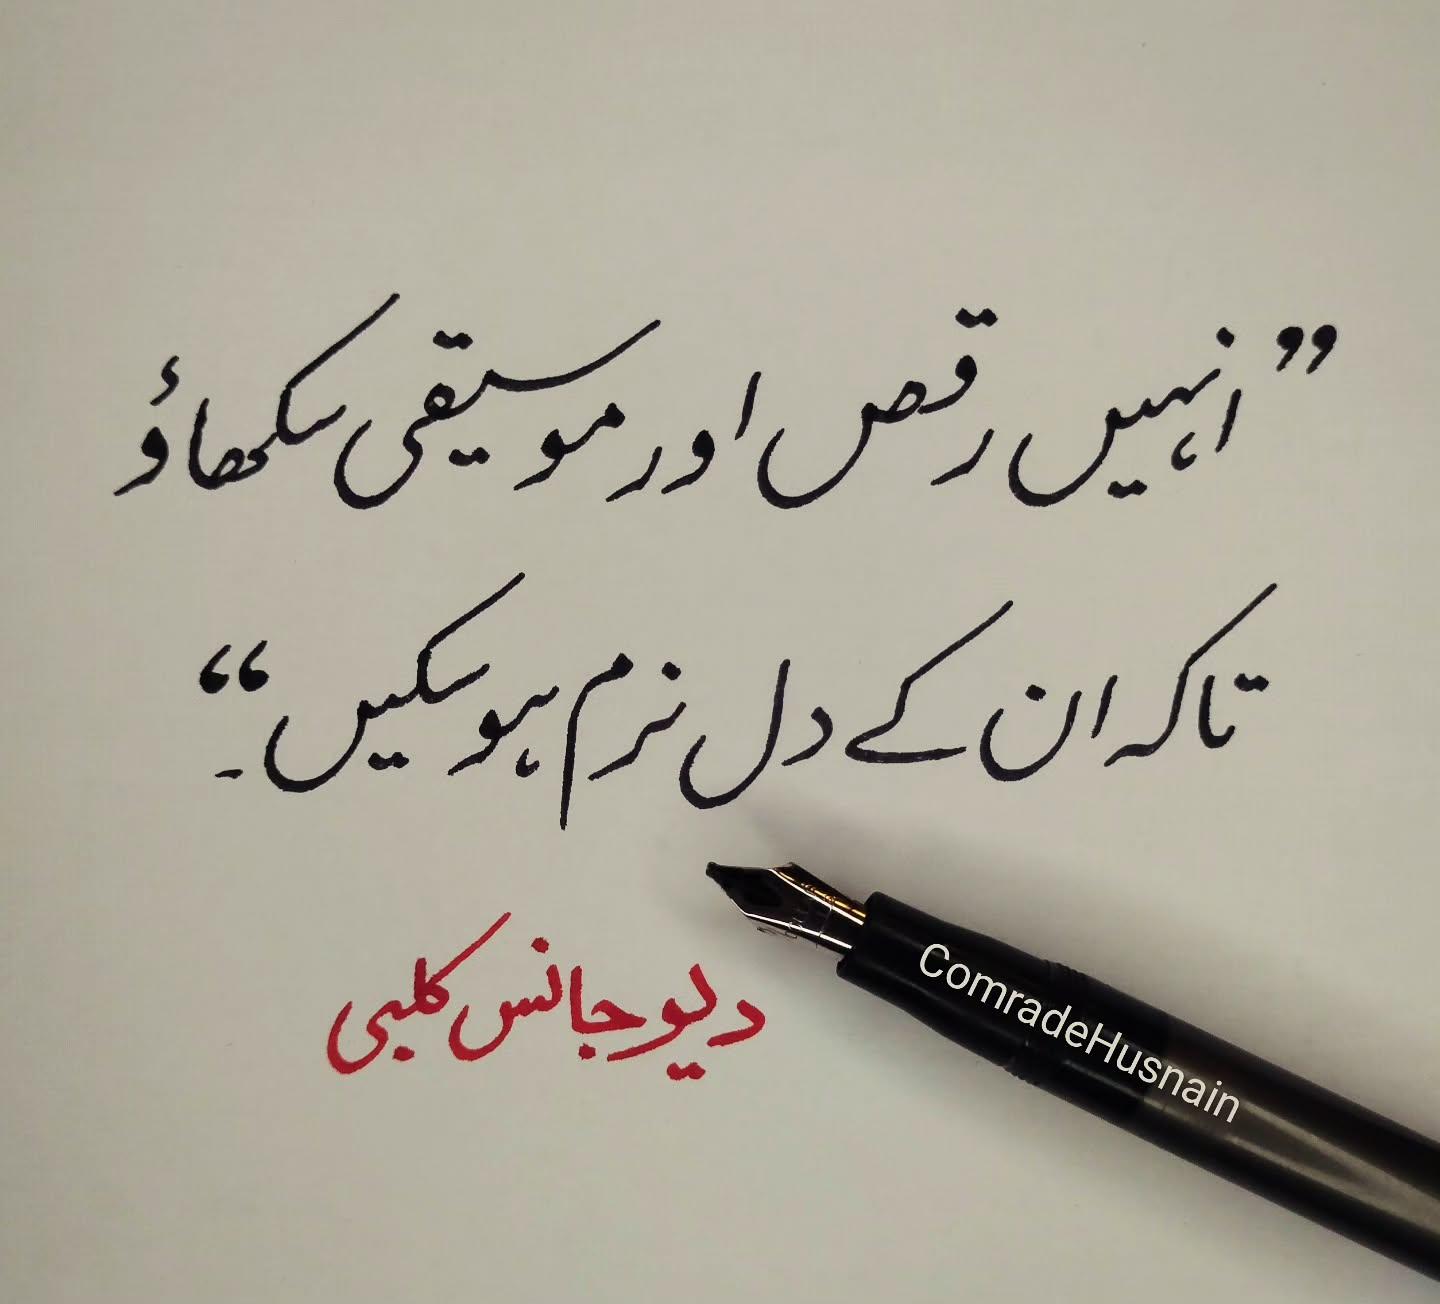 ”انہیں رقص اور موسیقی سکھاؤ
تاکہ ان کے دل نرم ہو سکیں۔“
دیوجانس کلبی
ComradeHusnain